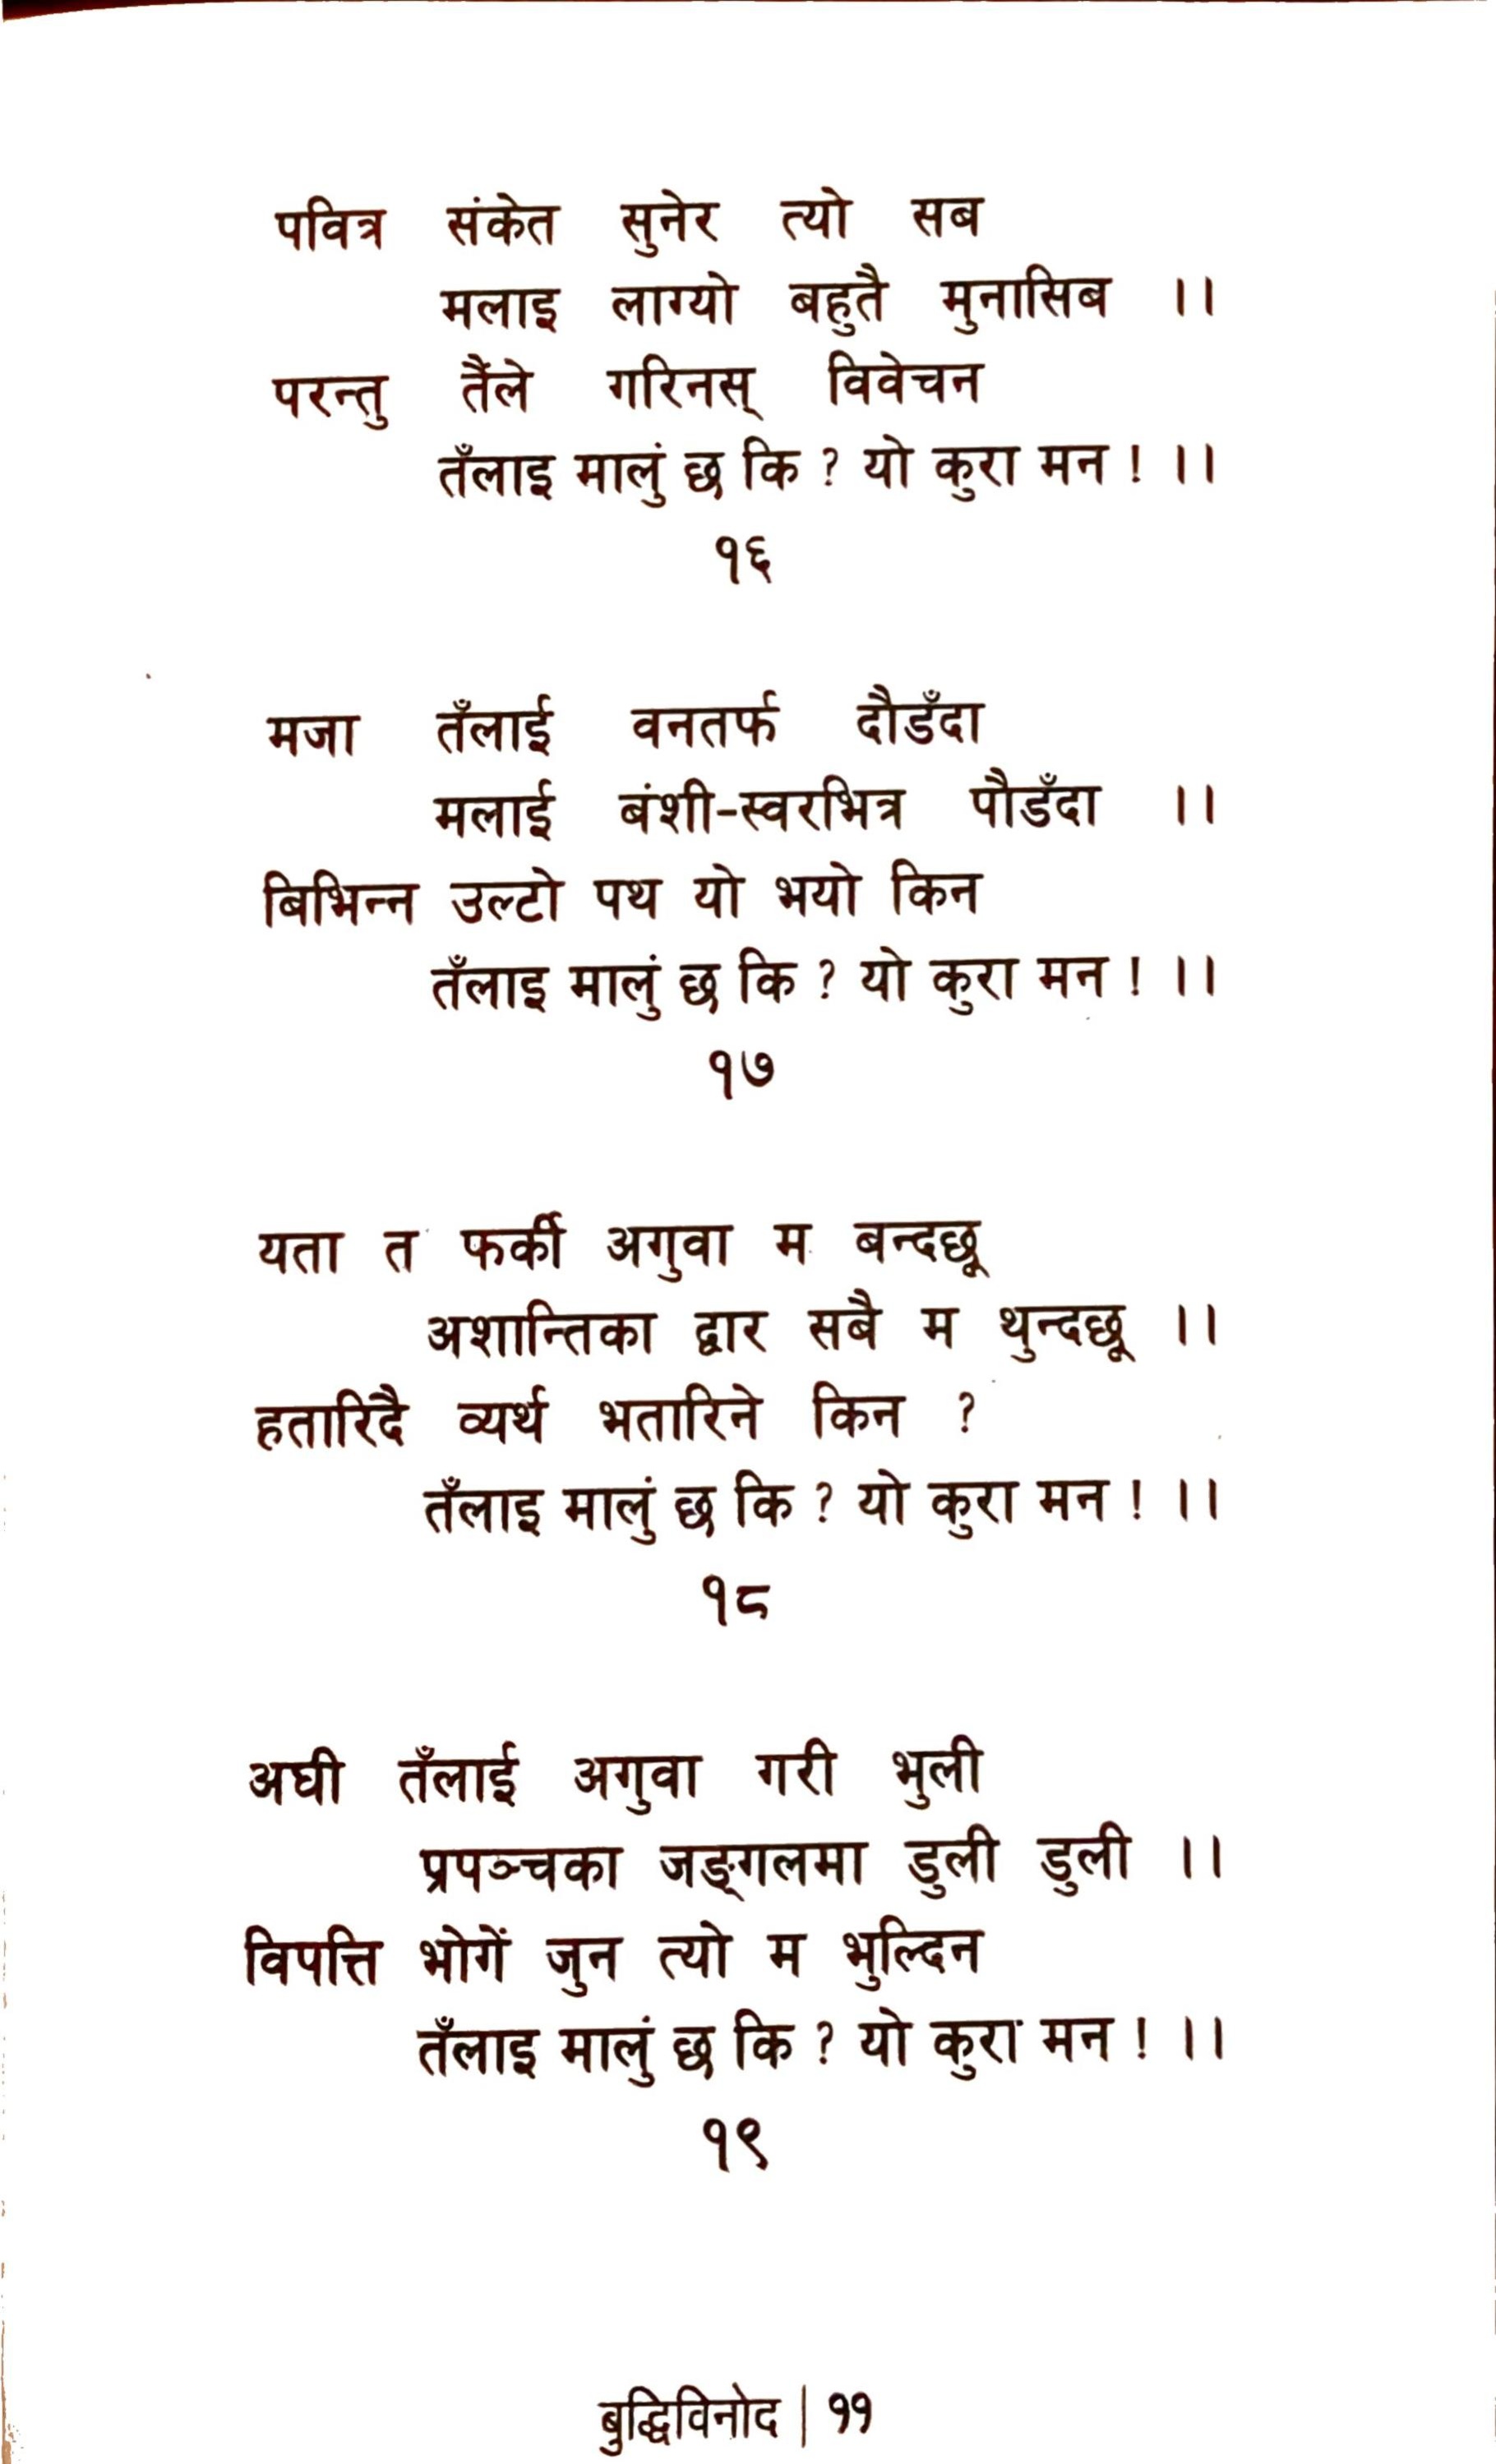 पवित्र संकेत सुनेर त्यो सब
मलाइ लाग्यो बहुतै मुनासिब ।।
परन्तु तैंले गरिनस् विवेचन
तँलाइ मालुं छ कि ? यो कुरा मन ! ।।
१६
मजा तँलाई वनतर्फ दौडँदा
मलाई बंशी-स्वरभित्र पौडँदा ।।
बिभिन्न उल्टो पथ यो भयो किन
तँलाइ मालुं छ कि ? यो कुरा मन ! ।।
१७
यता त फर्की अगुवा म बन्दछू
अशान्तिका द्वार सबै म थुन्दछू ।।
हतारिदै व्यर्थ भतारिने किन ?
तँलाइ मालुं छ कि ? यो कुरा मन ! ।।
१८
अघी तँलाई अगुवा गरी भुली
प्रपञ्चका जङ्गलमा डुली डुली ।।
विपत्ति भोगें जुन त्यो म भुल्दिन
तँलाइ मालुं छ कि ? यो कुरा मन ! ।।
१९
बुद्धिविनोद | ११